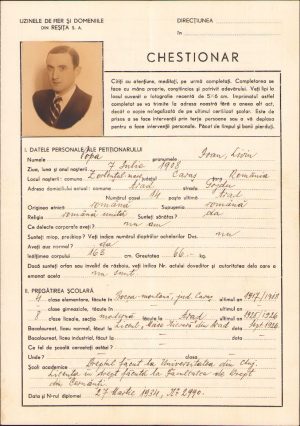 UZINELE DE FIER ȘI DOMENIILE
DIN REȘIȚA S. A.
DIRECȚIUNEA
în
CHESTIONAR
Citiți cu atențiune, meditați, pe urmă completați. Completarea se
face cu mâna proprie, conștiincios și potrivit adevărului. Veți lipi la
locul cuvenit o fotografie recentă de 5/6 cm. Imprimatul astfel
completat se va trimite la adresa noastră fără a anexa alt act,
decât o copie nelegalizată de pe ultimul certificat școlar. Este de
prisos a se face intervenții prin terțe persoane sau a vă deplasa
pentru a face intervenții personale. Păcat de timpul și banii pierduți.
I. DATELE PERSONALE ALE PETIȚIONARULUI
Numele Popa pronumele Ioan Liviu
Ziua, luna și anul nașterii 7 Iulie 1908
Locul nașterii: comuna județul Caraș țara România
Adresa domiciliului actual: strada Gojdu
No. comuna Arad județul Arad
Originea etnică română Supușenia română
Religia română unită Sunteți sănătos? da
Ce defecte corporale aveți? nu am
Sunteți miop, presbit? Veți indica numărul dioptriilor ochelarilor Dvs. nu
Aveți auz normal? da
Înălțimea corpului 165 cm. Greutatea 66 kg.
Dacă sunteți orfan sau invalid de războiu, veți indica Nr. actului doveditor și autoritatea dela care o
emanat acela nu sunt
II. PREGĂTIREA ȘCOLARĂ
4 clase elementare, făcute în Bocșa-montană, jud. Caraș ultimul an 1917/1918
clase gimnaziale, făcute în ultimul an
8 clase liceale, secția modernă făcute în Arad ultimul an 1925/1926
Bacalaureat, liceul normal, data Liceul „Moise Nicoară" din Arad Sept. 1926
Bacalaureat, liceul industrial, făcut la data
Ce fel de școală cercetați astăzi?
Unde? Clasa
Școli academice Dreptul făcut la Universitatea din Cluj.
Licența în drept făcută la Facultatea de Drept
din Cernăuți
Data și N-rul diplomei 27 Martie 1934, No 2990.